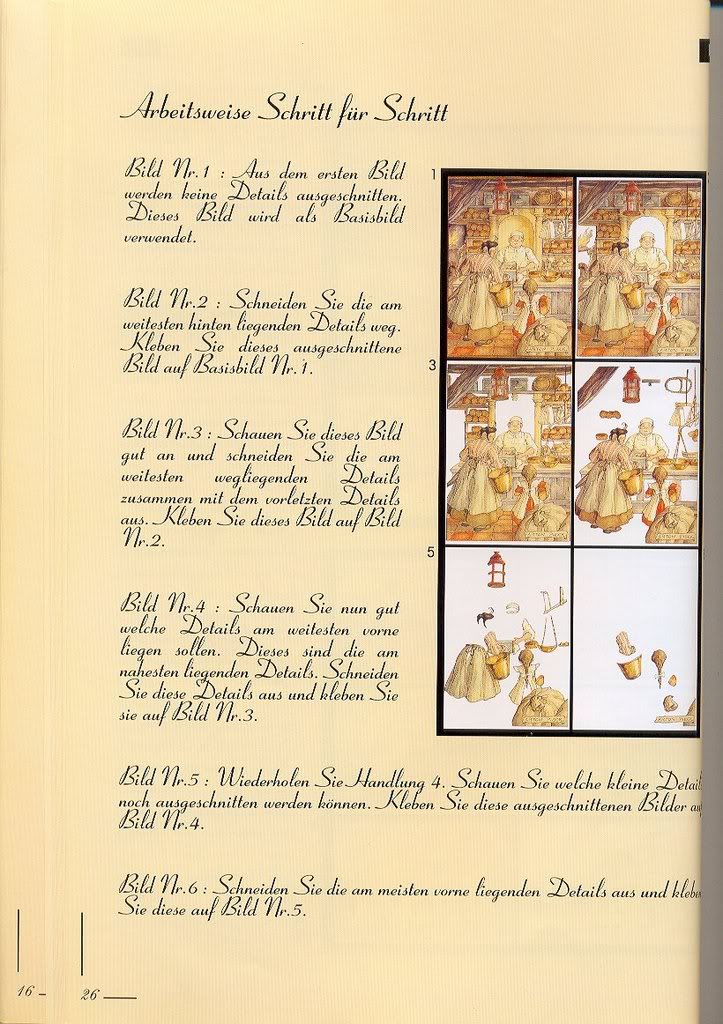 Arbeitsweise Schritt für Schritt
Bild Nr.1 : Aus dem ersten Bild
werden keine Details ausgeschnitten.
Dieses Bild wird als Basisbild
verwendet.
Bild Nr.2 : Schneiden Sie die am
weitesten hinten liegenden Details weg.
Kleben Sie dieses ausgeschnittene
Bild auf Basisbild Nr.1.
Bild Nr.3 : Schauen Sie dieses Bild
gut an und schneiden Sie die am
weitesten wegliegenden Details
zusammen mit dem vorletzten Details
aus. Kleben Sie dieses Bild auf Bild
Nr.2.
Bild Nr.4 : Schauen Sie nun gut
welche Details am weitesten vorne
liegen sollen. Dieses sind die am
nahesten liegenden Details. Schneiden
Sie diese Details aus und kleben Sie
sie auf Bild Nr.3.
1
3
5
Bild Nr.5 : Wiederholen Sie Handlung 4. Schauen Sie welche kleine Detail
noch ausgeschnitten werden können. Kleben Sie diese ausgeschnittenen Bilder au
Bild Nr.4.
Bild Nr.6 : Schneiden Sie die am meisten vorne liegenden Details aus und klebe
Sie diese auf Bild Nr.5.
16
26